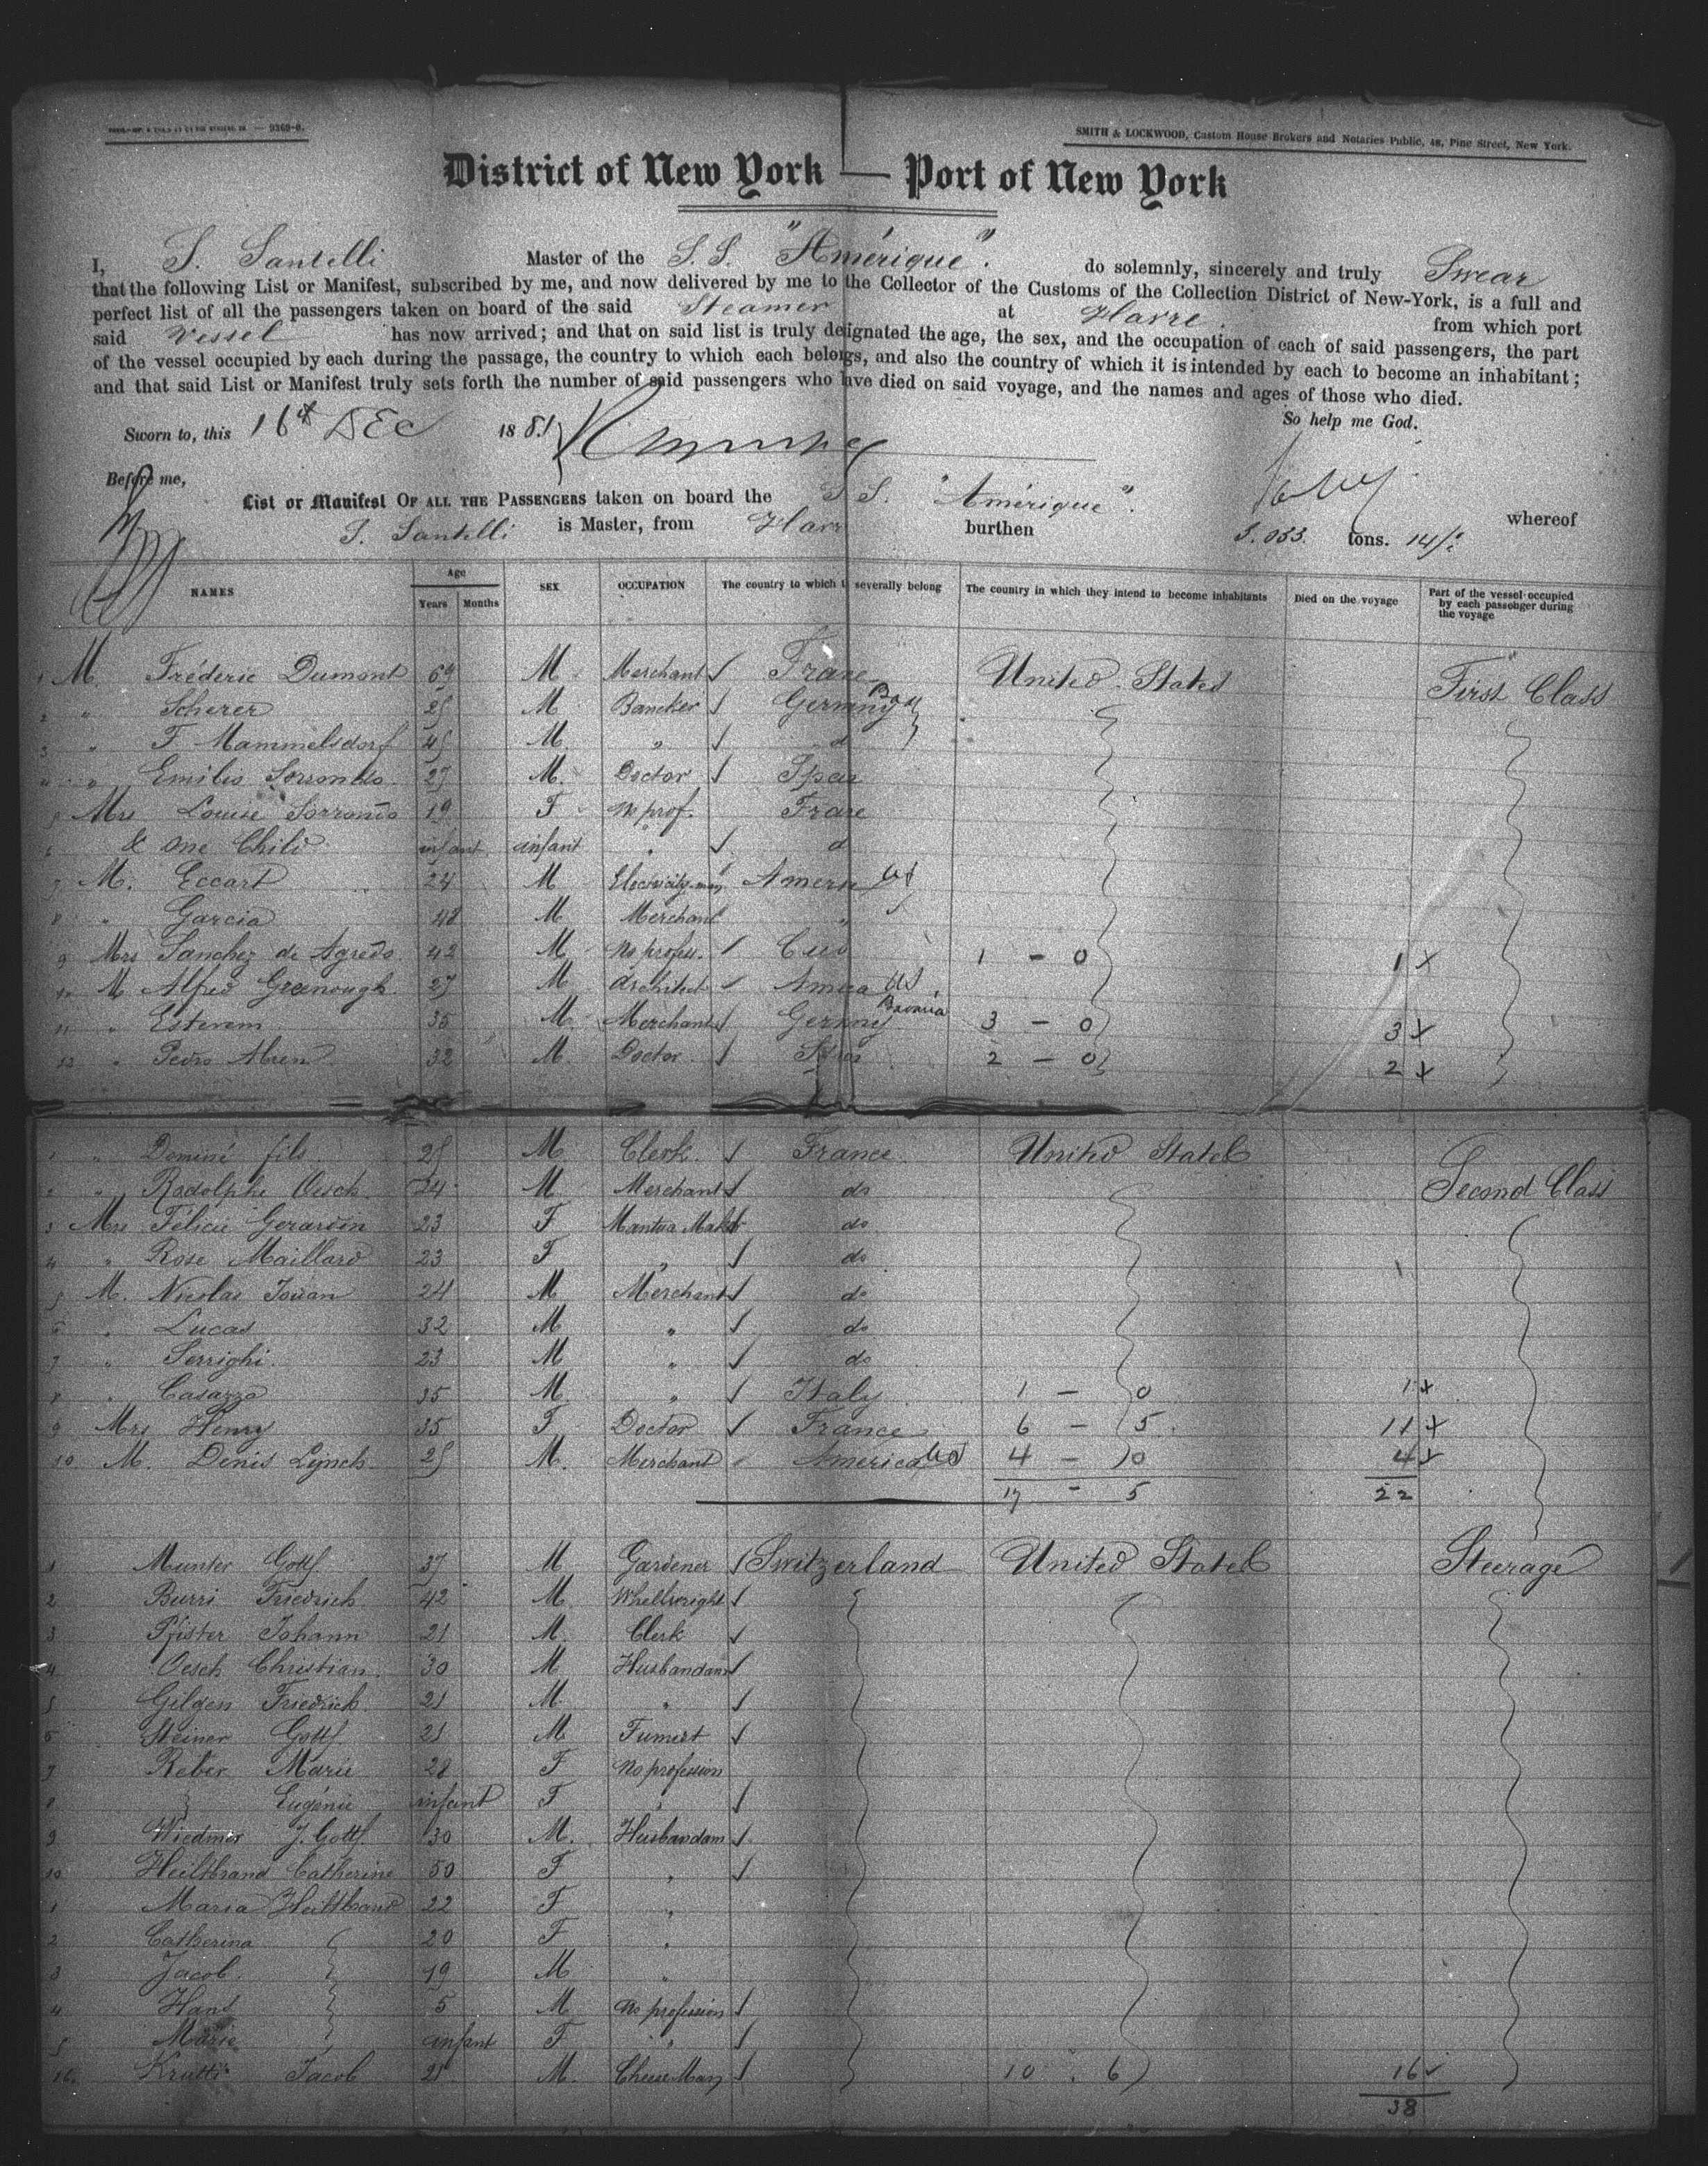 SMITH & LOCKWOOD, Custom House Brokers and Notaries Public, 48, Pine Street, New York.
District of New York — Port of New York
I, S. Santelli Master of the S.S. "Amérique". do solemnly, sincerely and truly Swear
that the following List or Manifest, subscribed by me, and now delivered by me to the Collector of the Customs of the Collection District of New-York, is a full and
perfect list of all the passengers taken on board of the said Steamer at Havre. from which port
said Vessel has now arrived; and that on said list is truly designated the age, the sex, and the occupation of each of said passengers, the part
of the vessel occupied by each during the passage, the country to which each belongs, and also the country of which it is intended by each to become an inhabitant;
and that said List or Manifest truly sets forth the number of said passengers who have died on said voyage, and the names and ages of those who died.
So help me God.
Sworn to, this 16th DEC 1881
Before me,
List or Manifest OF ALL THE PASSENGERS taken on board the S.S. "Amérique". whereof
S. Santelli is Master, from Havre burthen tons.
NAMES Age Years Months SEX OCCUPATION The country to which they severally belong The country in which they intend to become inhabitants Died on the voyage Part of the vessel occupied by each passenger during the voyage
1 M. Fréderic Dumont 69 M Merchant France United States First Class
2 " Scherer 25 M Bancker Germany
3 " F Mammelsdorf 45 M " d
4 " Emilio Sorrondo 27 M. Doctor Spain
5 Mrs Louise Sorrondo 19 F No prof. France
6 & one Child infant infant " d
7 M. Eccart 24 M Electricity-man America US
8 " Garcia 48 M Merchant "
9 Mrs Sanchez de Agredo 42 M No profess. Cuba 1 - 0 1 x
10 M Alfred Greenough 27 M architect America US
11 " Estevem 35 M Merchant Germany Bavaria 3 - 0 3 x
12 " Pedro Abreu 32 M Doctor 2 - 0 2 x
1 " Dominé fils 25 M Clerk France United States Second Class
2 " Rodolphe Oesch 24 M Merchant do
3 Mrs Félicie Gerardin 23 F Mantua Maker do
4 " Rose Maillard 23 F " do
5 M. Nicolas Jouan 24 M Merchant do
6 " Lucas 32 M " do
7 " Serrighi. 23 M " do
8 " Casazza 35 M " Italy 1 - 0 1 x
9 Mrs Henry 35 F Doctor France 6 - 5 11 x
10 M. Denis Lynch 25 M. Merchant America US 4 - 0 4 x
17 - 5 22
1 Munter Gottf. 37 M Gardener Switzerland United States Steerage
2 Burri Friedrich 42 M Whellwright
3 Pfister Johann 21 M. Clerk
4 Oesch Christian 30 M Husbandam
5 Gilgen Friedrich 21 M "
6 Steiner Gottf. 21 M Fumist
7 Reber Marie 28 F No profession
8 Eugénie infant F "
9 Wiedmer J. Gottf. 30 M. Husbandam
10 Heiltbrand Catherine 50 F "
1 Maria Heiltbrand 22 F "
2 Catherina 20 F "
3 Jacob 19 M "
4 Hans 5 M No profession
5 Marie infant F "
16 Krutti Jacob 21 M. Cheese Man 10 . 6 16
38